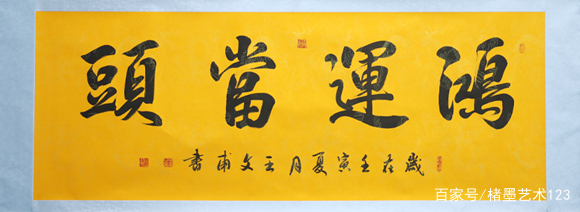 鴻運當頭
歲在壬寅夏月王文甫書
百家号/楮墨艺术123